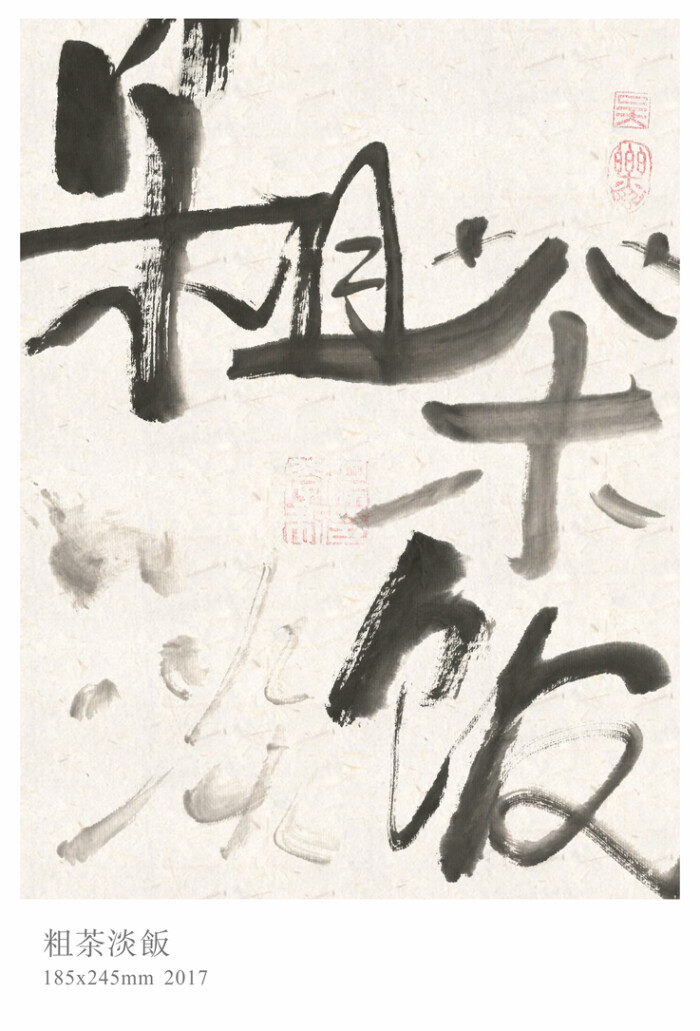 粗茶
淡飯
粗茶淡飯
185x245mm 2017